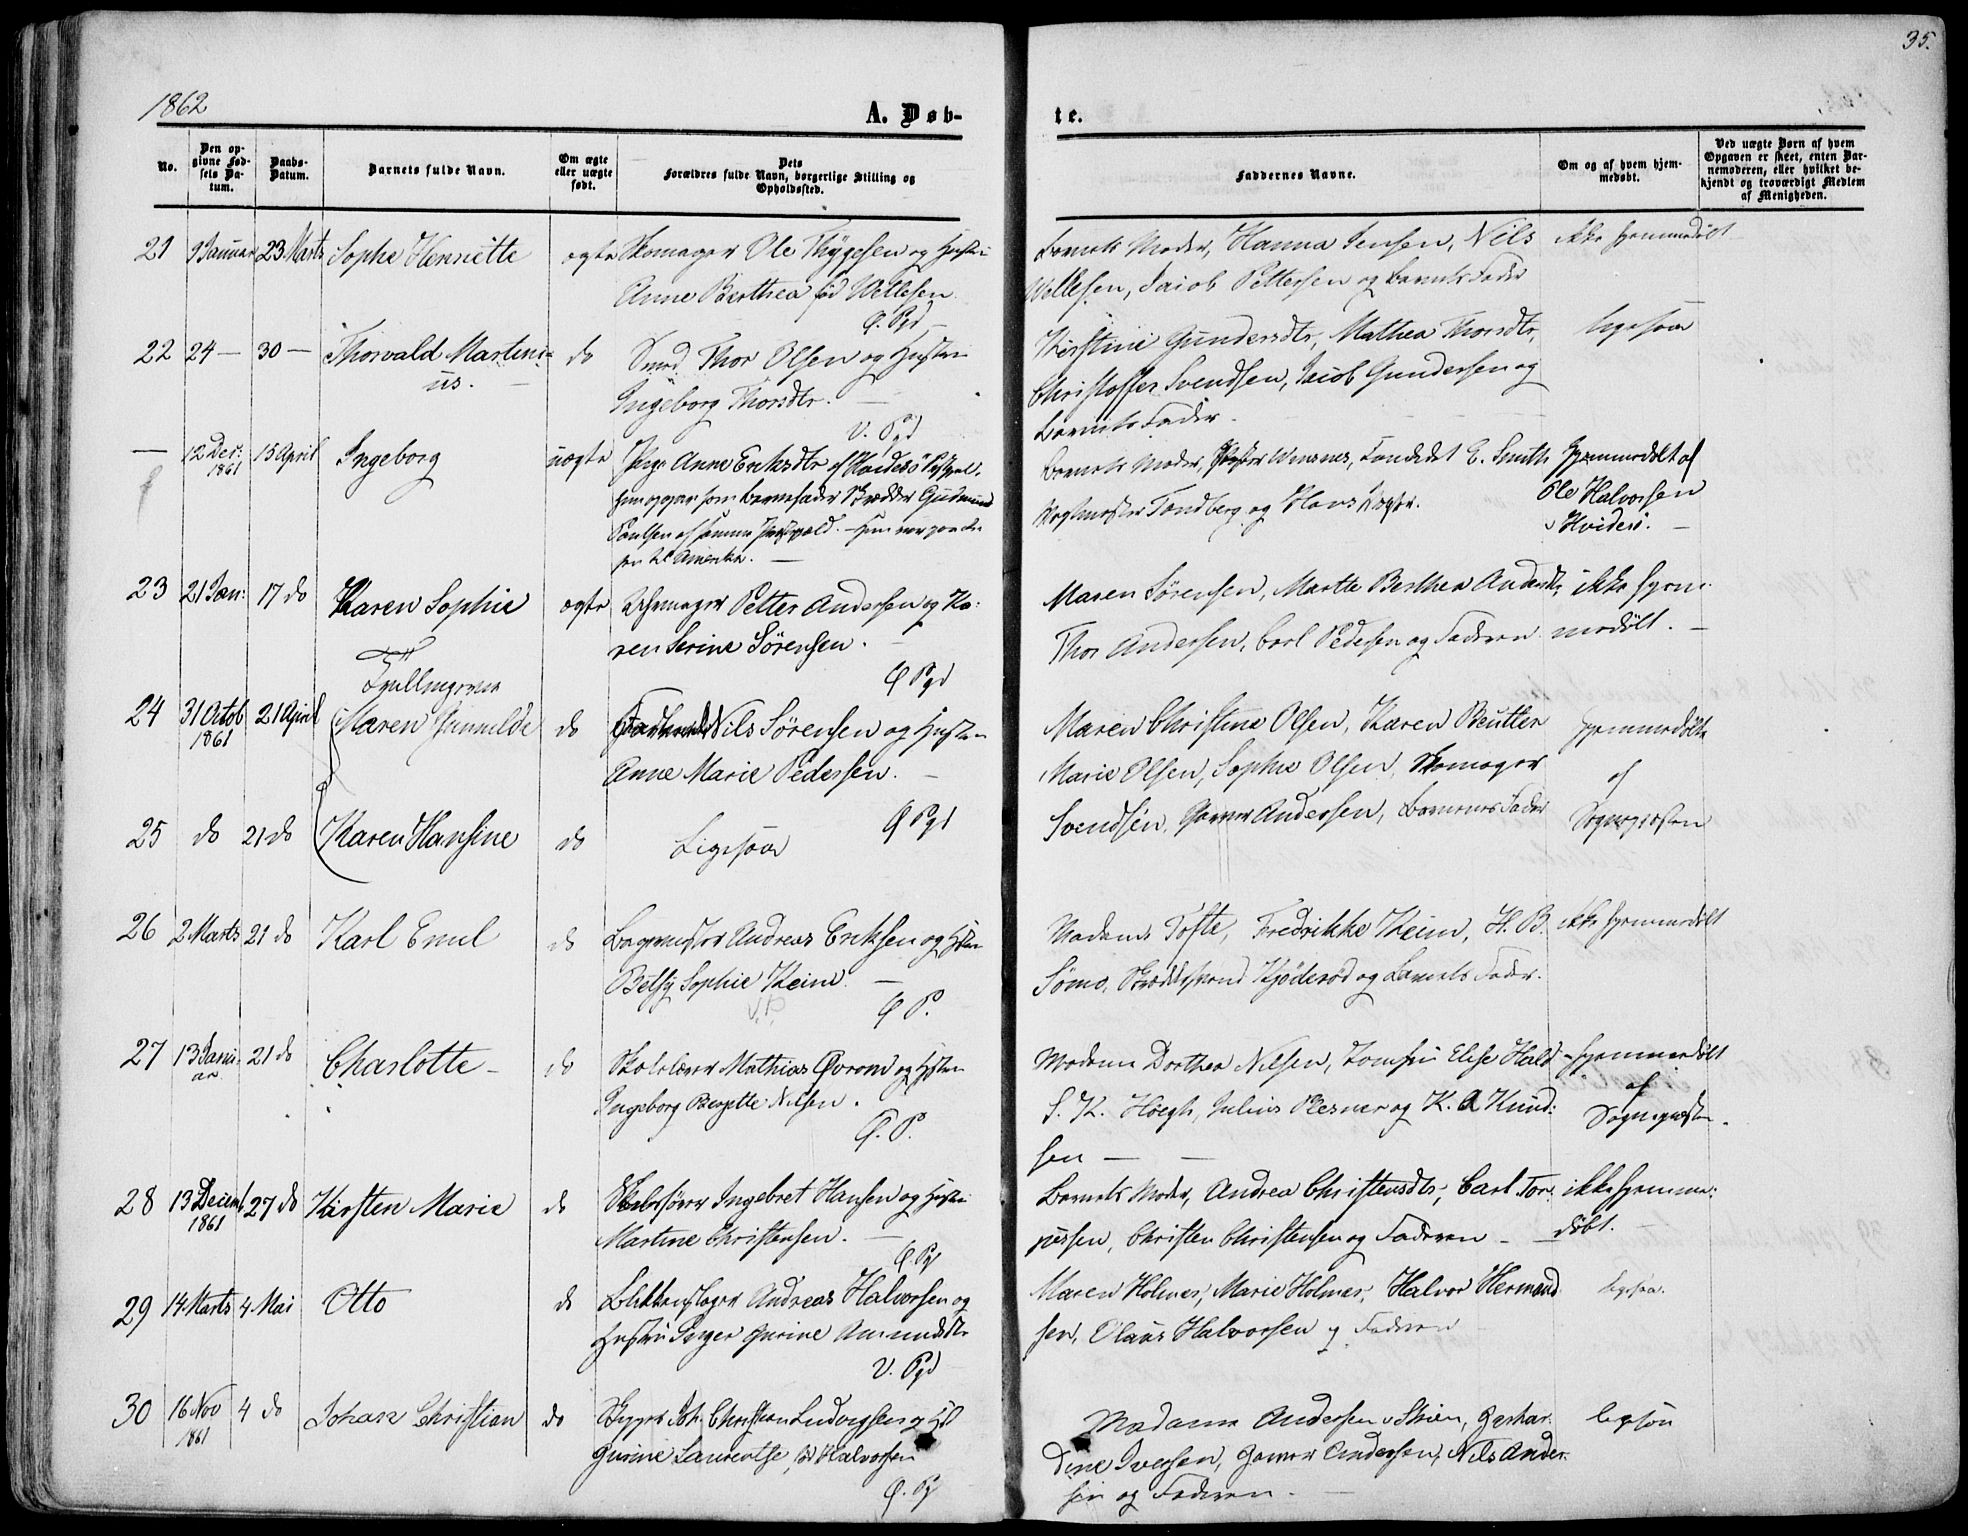 35.
1862
A. Døb-
te.
No.
Den op-
givne Fød-
sels Da-
tum.
Daabs-
Datum.
Barnets fulde Navn.
Om ægte
eller uægte
født.
Dets
Forældres fulde Navn, borgerlige Stilling og
Opholdssted.
Faddernes Navne.
Om og af hvem hjem-
medøbt.
Ved uægte Børn af hvem
Opgaven er skeet, enten Bar-
nemoderen, eller hvilket be-
kjendt og troværdigt Medlem
af Menigheden.
21 9 Januar 23 Marts Sophe Henriette ægte Skomager Ole Thygesen og Hustru
Anne Berthea fød Wellesen
Ø. Pgd
Barnets Moder, Hanna Jensen, Nils
Wellesen, Jacob Pettersen og Barnets Fader
ikke hjemmedøbt
22 24 — 30 — Thorvald Martini-
us. —
do Smed Thor Olsen og Hustru
Ingeborg Thorsdtr. —
V. Pgd
Kirstine Gundersdtr, Mathea Thorsdtr,
Christoffer Svendsen, Jacob Gundersen og
Barnets Fader.
ligesaa
— 12 Dec: 1861 15 April Ingeborg uægte Pige Anne Eriksdtr af Hvidesø Præstgjeld,
hun opgav som Barnefader Skrædder Gudmund
Paulsen af samme Præstgjeld. —
til Amerika. —
Barnets Moder, Wensnes, E. Smith
Tandberg og Hans
Hjemmedøbt af
Ole Halvorsen
Hvidesø. —
23 21 Jan: 17 do Karen Sophie ægte Petter Andersen og Ka-
ren Serine Sørensen. —
Ø Pgd
Maren Sørensen, Marthe Berthea Andersdtr,
Thor Andersen, Carl Pedersen og Faderen
ikke hjem-
medøbt. —
Tvillinger
24 31 Octob 1861 21 April Maren Gunnilde do Nils Sørensen og Hustru
Anne Marie Pedersen. —
Ø Pgd
Maren Christine Olsen, Karen Beutter
Marie Olsen, Sophie Olsen, Skomager
Svendsen, Garver Andersen, Barnenes Fader
hjemmedøbte
af
Sognepresten
25 do 21 do Karen Hansine do Ligesaa
26 2 Marts 21 do Karl Emil do Bagermester Andreas Eriksen og Hustru
Betsy Sophie Keim. —
V.P.
Ø P.
Madame Tofte, Fredrikke Keim, H. B.
Sømo, Kjøderød og Barnets Fader.
ikke hjemmedøbt
27 13 Janu-
ar 21 do Charlotte — do Skolelærer Mathias Øvrom og Hustru
Ingeborg Bergette Nilsen.
Ø. P.
Madame Dorthea Nilsen, Jomfru Elise Hald
S. K. Høegh, Julius Plesner og K. A Knud-
sen —
hjemmedøbt
af
Sognepresten.
28 13 Decemb 1861 27 do Kirsten Marie do Ingebret Hansen og Hustru
Martine Christensen. —
Ø. Pgd
Barnets Moder, Andrea Christensdtr, Carl Tor-
jussen, Christen Christensen og Faderen —
ikke hjemme-
døbt.
29 14 Marts 4 Mai Otto do Blikkenslager Andreas Halvorsen og
Hustru Inger Gurine Amundsdtr
V. Pgd
Maren Holmer, Marie Holmer, Halvor Hermand-
sen, Olaus Halvorsen og Faderen
ligesaa.
30 16 Nov 1861 4 do Johan Christian do Joh. Christian Ludvigsen og
Gurine Laurentse, Halvorsen
Ø. Pgd
Madame Andersen Skien, Gerhar-
dine Iversen, Garver Andersen, Nils Ander-
sen og Faderen. —
ligesaa